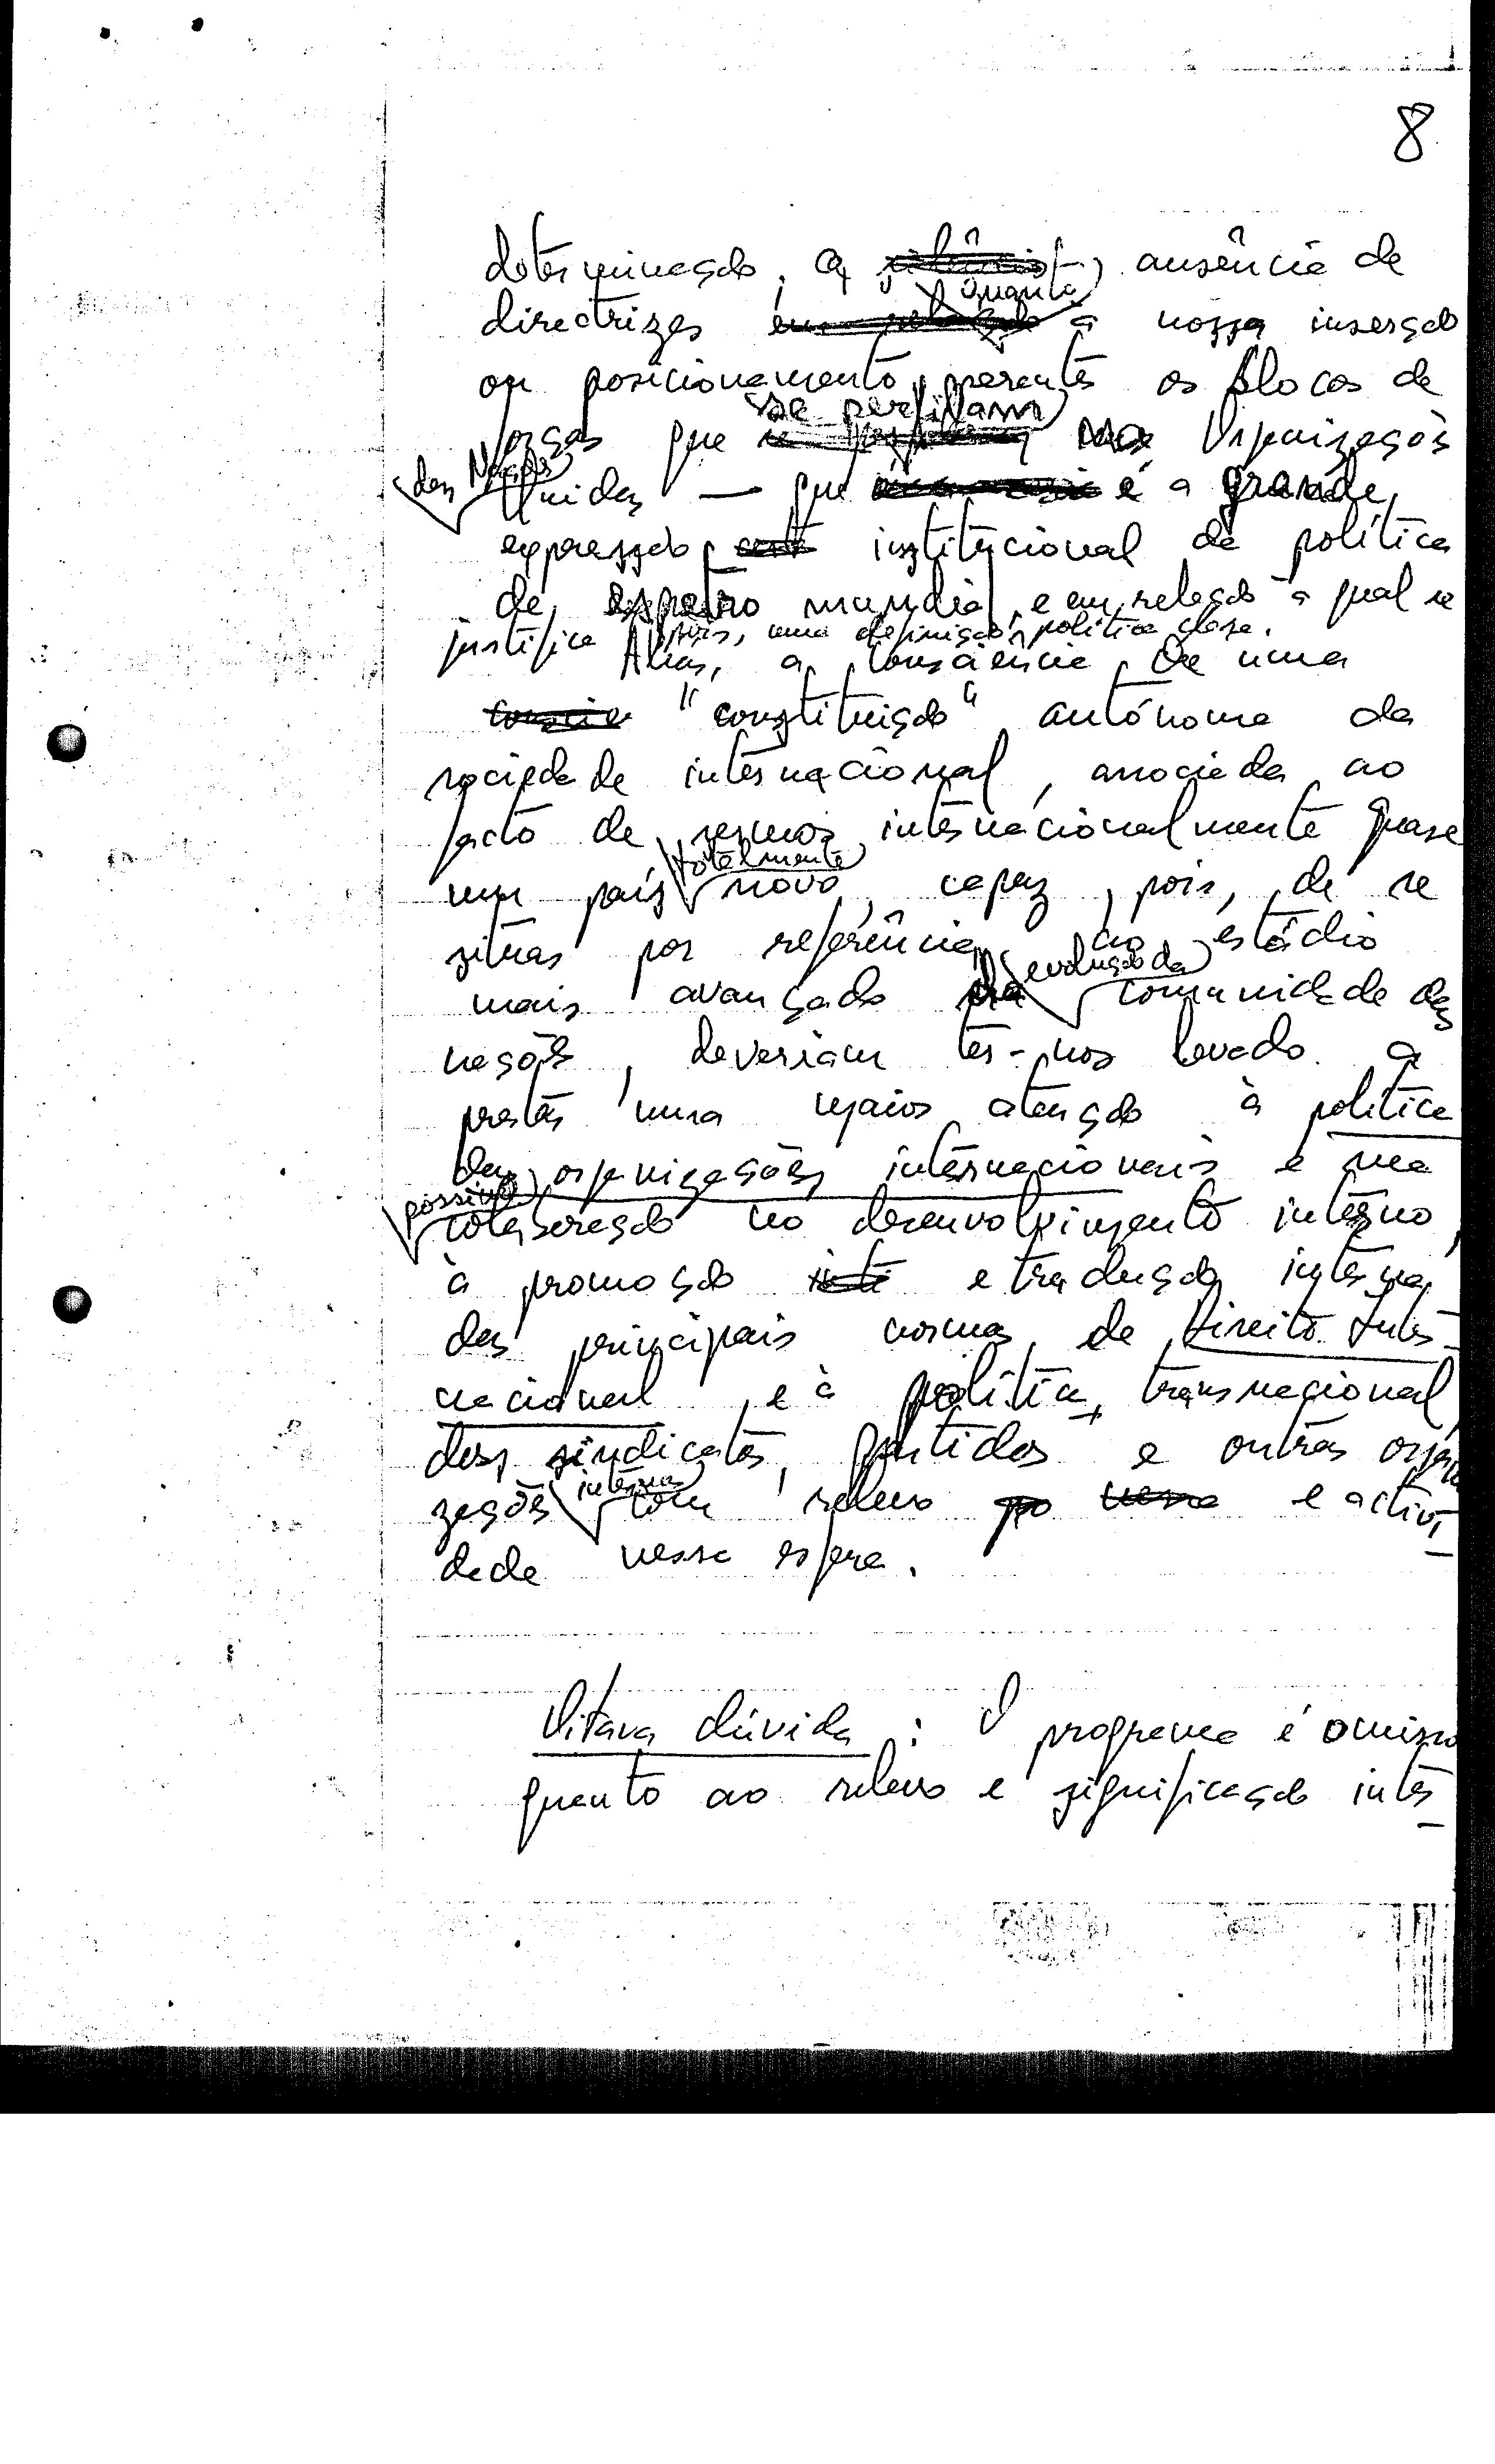 8
determinação, a ausência de
directrizes quanto à nossa inserção
ou posicionamento perante os blocos de
forças que se perfilam nas Organizações
das Nações Unidas — que é a grande
expressão institucional da política
de espectro mundial, e em relação à qual se
justifica, pois, uma definição política clara.
Aliás, a consciência de uma
"constituição" autónoma da
sociedade internacional, associada ao
facto de sermos internacionalmente quase
um país totalmente novo, capaz, pois, de se
situar por referência ao estádio
mais avançado da evolução da comunidade das
nações, deveriam ter-nos levado a
prestar uma maior atenção à política
das organizações internacionais e sua
possível colaboração no desenvolvimento interno,
à promoção e tradução interna
das principais normas de Direito Inter-
nacional, e à política transnacional
dos sindicatos, partidos e outras organi
zações internas com relevo e activi-
dade nessa esfera.
Oitava dúvida : O programa é omisso
quanto ao relevo e significação inter-